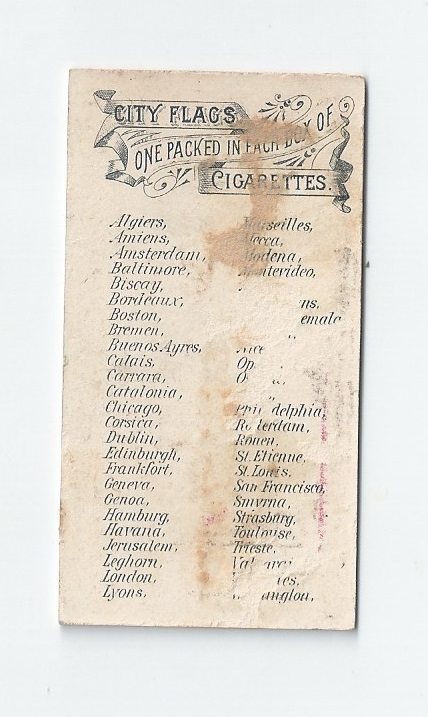 CITY FLAGS
ONE PACKED IN EACH BOX OF
CIGARETTES.
Algiers,
Amiens,
Amsterdam,
Baltimore,
Biscay,
Bordeaux,
Boston,
Bremen,
Buenos Ayres,
Calais,
Carrara,
Catalonia,
Chicago,
Corsica,
Dublin,
Edinburgh,
Frankfort,
Geneva,
Genoa,
Hamburg,
Havana,
Jerusalem,
Leghorn,
London,
Lyons,
Marseilles,
Mecca,
Modena,
Montevideo,
Philadelphia
Rotterdam,
Rouen,
St. Etienne,
St. Louis,
San Francisco,
Smyrna,
Strasburg,
Toulouse,
Trieste,